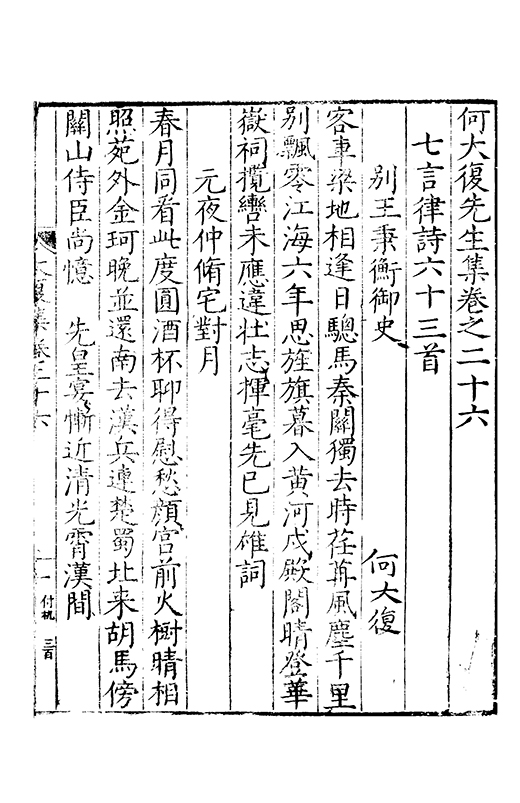 何大復先生集卷之二十六
七言律詩六十三首
別王秉衡御史
何大復
客車梁地相逢日驄馬秦關獨去時荏苒風塵千里
別飄零江海六年思旌旗暮入黄河戍殿閣晴登華
嶽祠攬轡未應違壯志揮毫先已見雄詞
元夜仲脩宅對月
春月同看此度圓酒杯聊得慰愁顔宮前火樹晴相
照苑外金珂晚並還南去漢兵連楚蜀北来胡馬傍
關山侍臣尚憶 先皇宴慚近清光霄漢間
大復集卷二十六
一
付机
三百